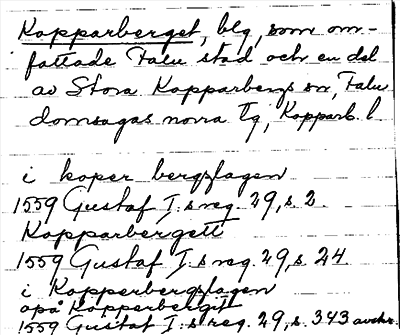 Kopparberget, blg, som om-
fattade Falu stad och en del
av Stora Kopparbergs sn, Falu
domsagas norra tg, Kopparb. l.
i koper bergsslagen
1559 Gustaf I:s reg. 29, s. 2.
Kopparbergett
1559 Gustaf I:s reg. 29, s. 24
i Kopperbergslagen
opå Kopperbergit
1559 Gustaf I:s reg. 29, s. 343 avskr.